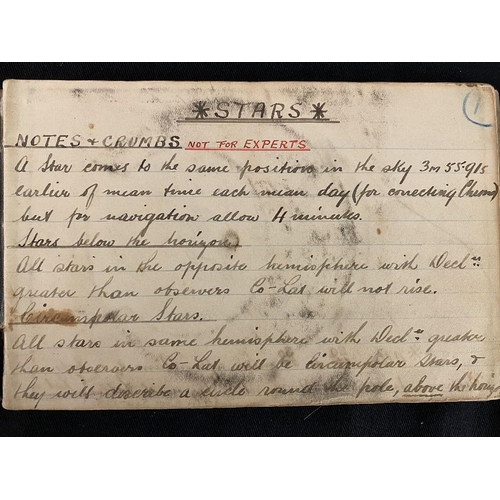 *STARS*
1
NOTES & CRUMBS NOT FOR EXPERTS
A Star comes to the same position in the sky 3m 55.91s
earlier of mean time each mean day (for correcting Chrono)
but for navigation allow 4 minutes.
Stars below the horizon.
All stars in the opposite hemisphere with Decln
greater than observers Co-Lat will not rise.
Circumpolar Stars.
All stars in same hemisphere with Decln greater
than observers Co-Lat will be Circumpolar Stars, &
they will describe a circle round the pole, above the horizo